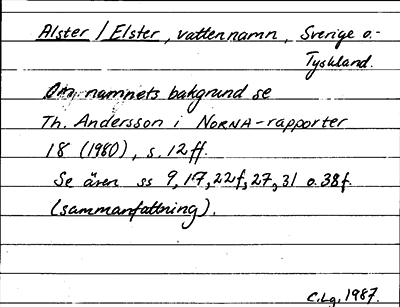 Alster / Elster, vattennamn, Sverige o.
Tyskland.
Om namnets bakgrund se
Th. Andersson i NORNA-rapporter
18 (1980), s. 12 ff.
Se även ss 9, 17, 22f, 27, 31 o. 38f.
(sammanfattning).
C.Lg, 1987.